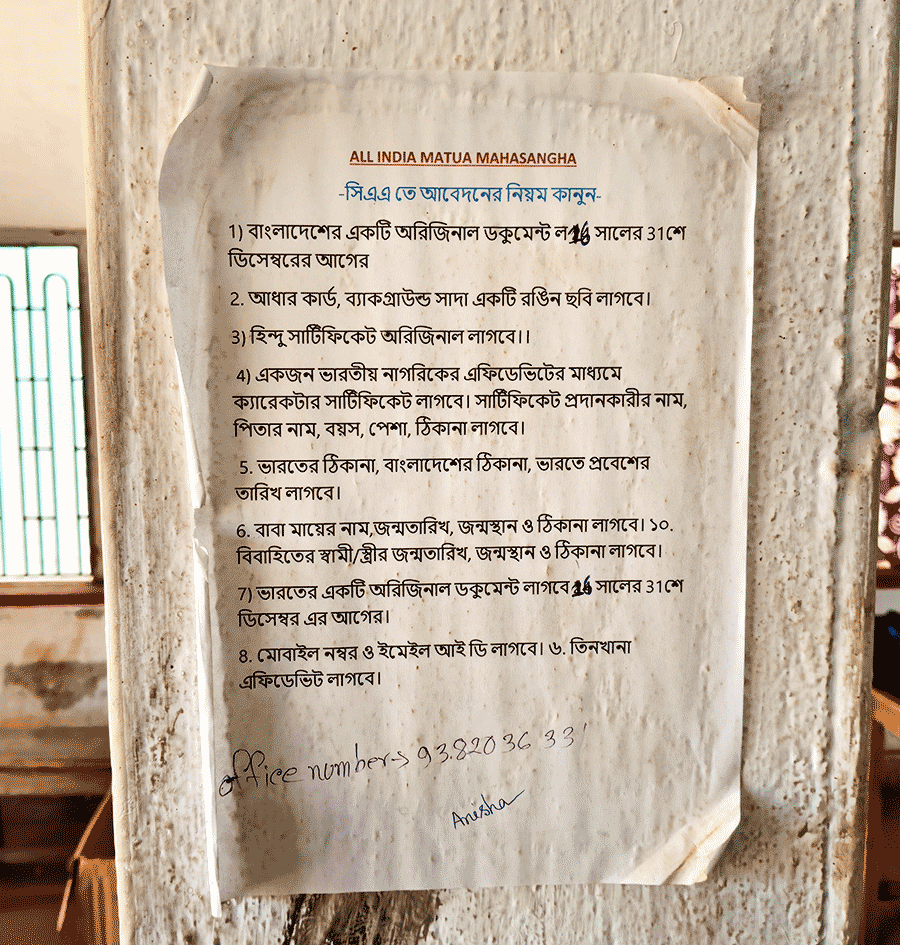 ALL INDIA MATUA MAHASANGHA
-সিএএ তে আবেদনের নিয়ম কানুন-
1) বাংলাদেশের একটি অরিজিনাল ডকুমেন্ট ল সালের 31শে
ডিসেম্বরের আগের
2. আধার কার্ড, ব্যাকগ্রাউন্ড সাদা একটি রঙিন ছবি লাগবে।
3) হিন্দু সার্টিফিকেট অরিজিনাল লাগবে।।
4) একজন ভারতীয় নাগরিকের এফিডেভিটের মাধ্যমে
ক্যারেকটার সার্টিফিকেট লাগবে। সার্টিফিকেট প্রদানকারীর নাম,
পিতার নাম, বয়স, পেশা, ঠিকানা লাগবে।
5. ভারতের ঠিকানা, বাংলাদেশের ঠিকানা, ভারতে প্রবেশের
তারিখ লাগবে।
6. বাবা মায়ের নাম,জন্মতারিখ, জন্মস্থান ও ঠিকানা লাগবে। ১০.
বিবাহিতের স্বামী/স্ত্রীর জন্মতারিখ, জন্মস্থান ও ঠিকানা লাগবে।
7) ভারতের একটি অরিজিনাল ডকুমেন্ট লাগবে সালের 31শে
ডিসেম্বর এর আগের।
8. মোবাইল নম্বর ও ইমেইল আই ডি লাগবে। ৬. তিনখানা
এফিডেভিট লাগবে।
office number-> 93820 36 33
Anisha